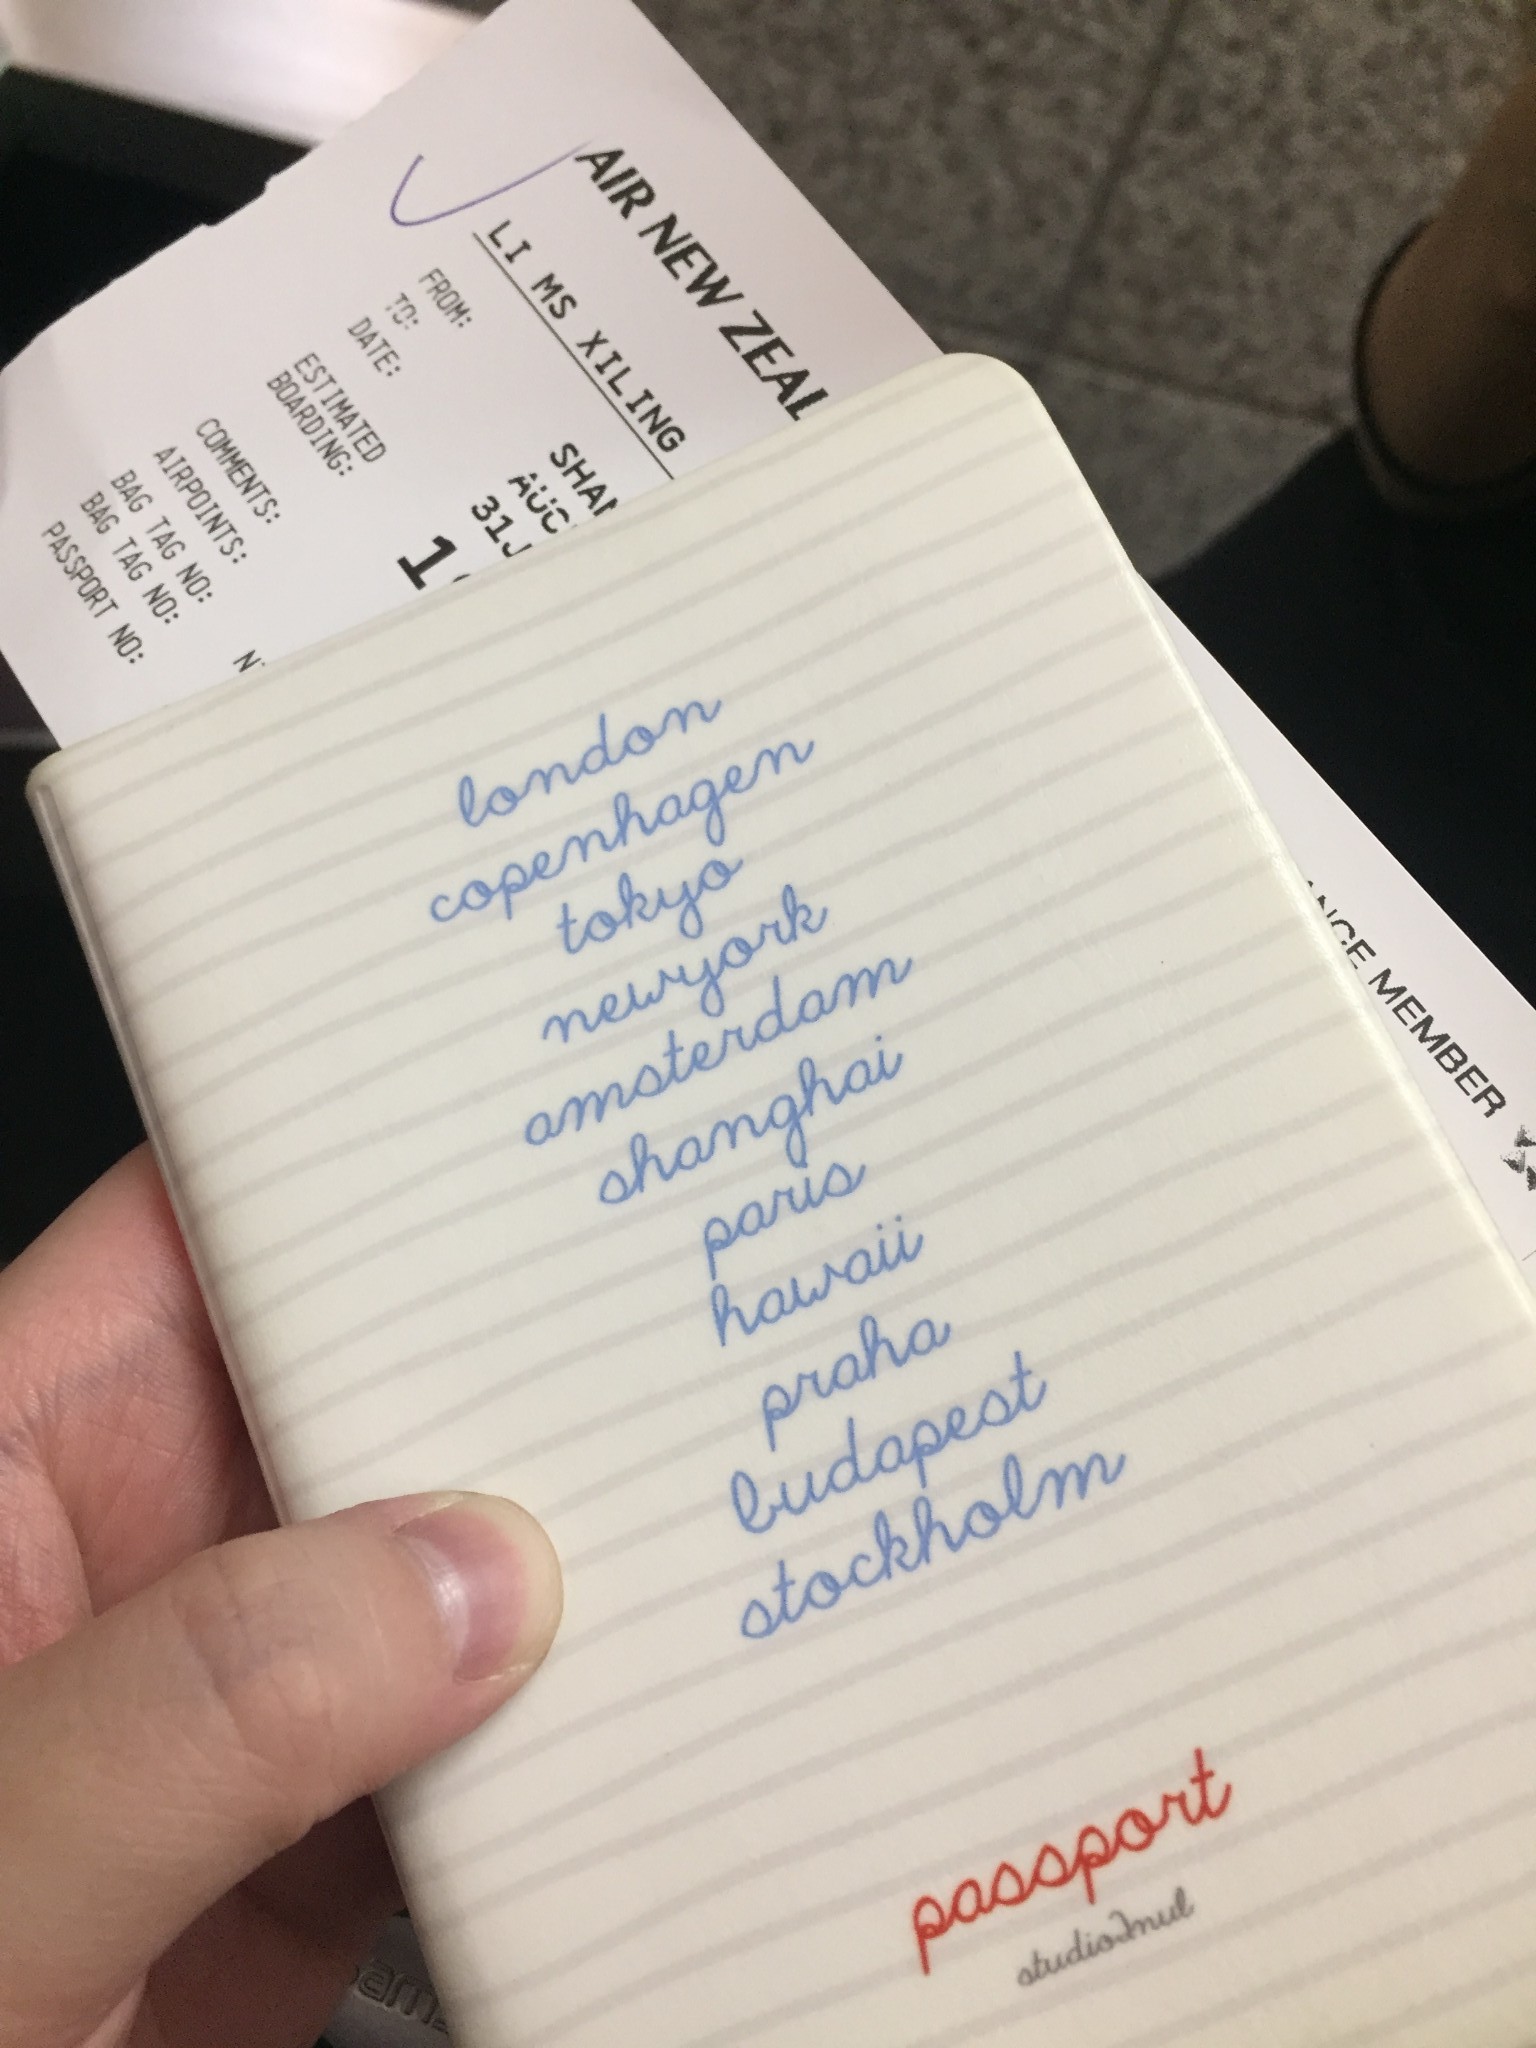 AIR NEW ZEAL
LI MS XILING
FROM: SHAN
TO: AUC
DATE: 31J
ESTIMATED
BOARDING: 1
COMMENTS:
AIRPOINTS:
BAG TAG NO:
BAG TAG NO:
PASSPORT NO:
MEMBER
london
copenhagen
tokyo
newyork
amsterdam
shanghai
paris
hawaii
praha
budapest
stockholm
passport